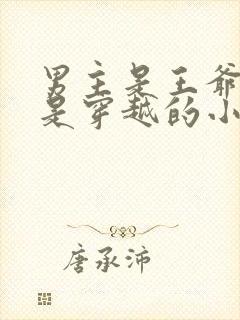 男主是王爷
是穿越的小
唐承沛